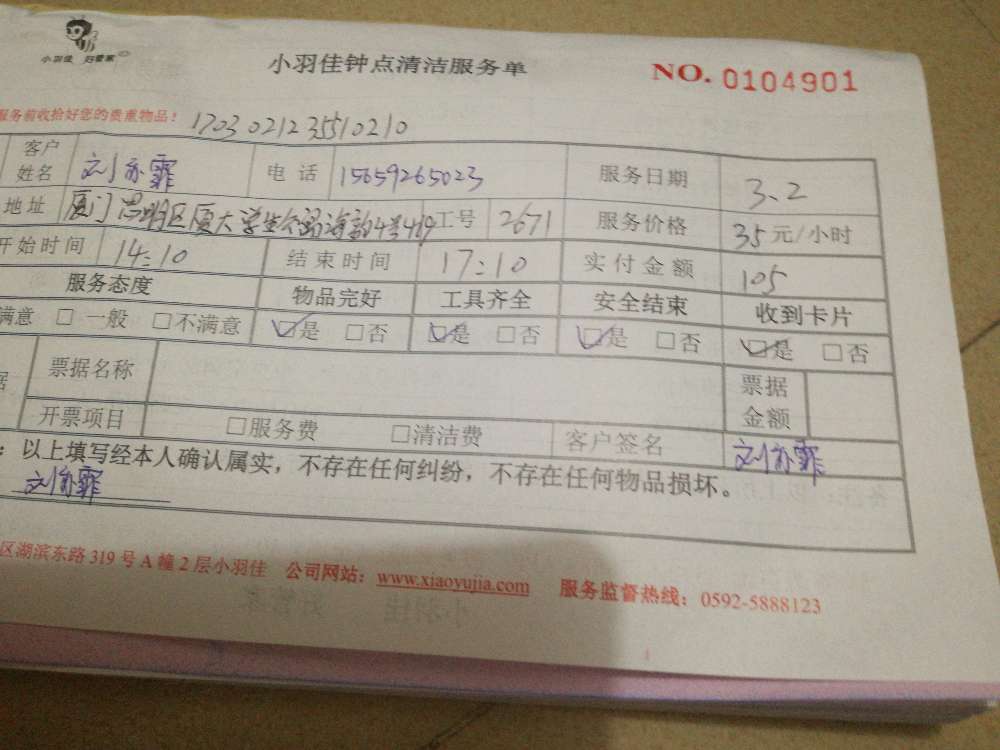 小羽佳 好管家
小羽佳钟点清洁服务单 NO. 0104901
服务前收拾好您的贵重物品! 1703021235510210
客户姓名 刘亦霏 电话 15659265023 服务日期 3.2
地址 厦门思明区厦大学生公寓海韵4号419 工号 2671 服务价格 35元/小时
开始时间 14:10 结束时间 17:10 实付金额 105
服务态度 物品完好 工具齐全 安全结束 收到卡片
满意 □一般 □不满意 ☑是 □否 ☑是 □否 ☑是 □否 ☑是 □否
据 票据名称 票据金额
开票项目 □服务费 □清洁费 客户签名 刘亦霏
: 以上填写经本人确认属实,不存在任何纠纷,不存在任何物品损坏。
刘亦霏
区湖滨东路319号A幢2层小羽佳 公司网站:www.xiaoyujia.com 服务监督热线:0592-5888123